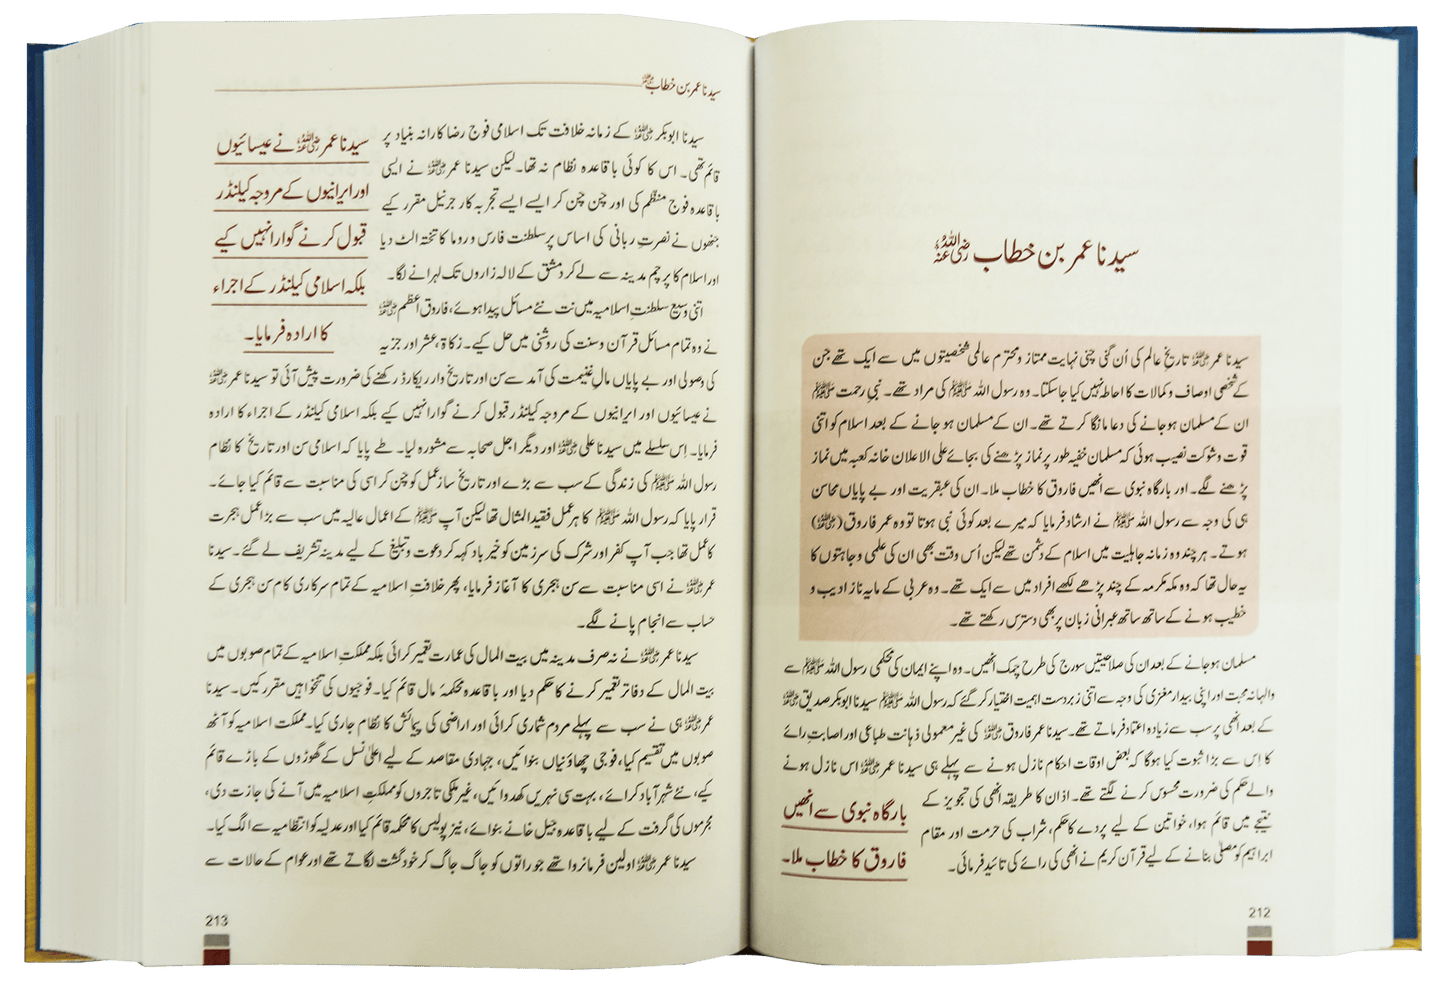 سیدنا عمر بن خطاب رضی اللہ عنہ
سیدنا عمر ﷛ تاریخِ عالم کی اُن گنی چنی نہایت ممتاز ومحترم عالمی شخصیتوں میں سے ایک تھے جن
کے شخصی اوصاف وکمالات کا احاطہ نہیں کیا جاسکتا۔ وہ رسول اللہ ﷺ کی مراد تھے۔ نبیِ رحمت ﷺ
ان کے مسلمان ہوجانے کی دعا مانگا کرتے تھے۔ ان کے مسلمان ہو جانے کے بعد اسلام کو اتنی
قوت وشوکت نصیب ہوئی کہ مسلمان خفیہ طور پر نماز پڑھنے کی بجائے علی الاعلان خانہ کعبہ میں نماز
پڑھنے لگے۔ اور بارگاہ نبوی سے انھیں فاروق کا خطاب ملا۔ ان کی عبقریت اور بے پایاں محاسن
ہی کی وجہ سے رسول اللہ ﷺ نے ارشاد فرمایا کہ میرے بعد کوئی نبی ہوتا تو وہ عمر فاروق (﷛)
ہوتے۔ ہر چند وہ زمانہ جاہلیت میں اسلام کے دشمن تھے لیکن اُس وقت بھی ان کی علمی وجاہتوں کا
یہ حال تھا کہ وہ مکہ مکرمہ کے چند پڑھے لکھے افراد میں سے ایک تھے۔ وہ عربی کے مایہ ناز ادیب و
خطیب ہونے کے ساتھ ساتھ عبرانی زبان پر بھی دسترس رکھتے تھے۔
مسلمان ہوجانے کے بعد ان کی صلاحیتیں سورج کی طرح چمک اٹھیں۔ وہ اپنے ایمان کی محکمی رسول اللہ ﷺ سے
والہانہ محبت اور اپنی بیدار مغزی کی وجہ سے اتنی زبردست اہمیت اختیار کر گئے کہ رسول اللہ ﷺ سیدنا ابوبکر صدیق ﷛
کے بعد انھی پر سب سے زیادہ اعتماد فرماتے تھے۔ سیدنا عمر فاروق ﷛ کی غیر معمولی ذہانت طباعی اور اصابتِ رائے
کا اِس سے بڑا ثبوت کیا ہوگا کہ بعض اوقات احکام نازل ہونے سے پہلے ہی سیدنا عمر ﷛ اس نازل ہونے
والے حکم کی ضرورت محسوس کرنے لگتے تھے۔ اذان کا طریقہ انھی کی تجویز کے
نتیجے میں قائم ہوا، خواتین کے لیے پردے کا حکم، شراب کی حرمت اور مقام
ابراہیم کو مصلیٰ بنانے کے لیے قرآن کریم نے انھی کی رائے کی تائید فرمائی۔
بارگاہ نبوی سے انھیں
فاروق کا خطاب ملا۔
212
سیدنا عمر بن خطاب ﷛
سیدنا ابوبکر ﷛ کے زمانہ خلافت تک اسلامی فوج رضا کارانہ بنیاد پر
قائم تھی۔ اس کا کوئی باقاعدہ نظام نہ تھا۔ لیکن سیدنا عمر ﷛ نے ایسی
باقاعدہ فوج منظّم کی اور چن چن کر ایسے ایسے تجربہ کار جرنیل مقرر کیے
جنھوں نے نصرتِ ربانی کی اساس پر سلطنت فارس و روما کا تختہ الٹ دیا
اور اسلام کا پرچم مدینہ سے لے کر دمشق کے لالہ زاروں تک لہرانے لگا۔
اتنی وسیع سلطنتِ اسلامیہ میں نت نئے مسائل پیدا ہوئے، فاروق اعظم ﷛
نے وہ تمام مسائل قرآن وسنت کی روشنی میں حل کیے۔ زکاۃ، عشر اور جزیہ
سیدنا عمر ﷛ نے عیسائیوں
اور ایرانیوں کے مروجہ کیلنڈر
قبول کرنے گوارا نہیں کیے
بلکہ اسلامی کیلنڈر کے اجراء
کا ارادہ فرمایا۔
کی وصولی اور بے پایاں مالِ غنیمت کی آمد سے سن اور تاریخ وار ریکارڈ رکھنے کی ضرورت پیش آئی تو سیدنا عمر ﷛
نے عیسائیوں اور ایرانیوں کے مروجہ کیلنڈر قبول کرنے گوارا نہیں کیے بلکہ اسلامی کیلنڈر کے اجراء کا ارادہ
فرمایا۔ اِس سلسلے میں سیدنا علی ﷛ اور دیگر اجل صحابہ سے مشورہ لیا۔ طے پایا کہ اسلامی سن اور تاریخ کا نظام
رسول اللہ ﷺ کی زندگی کے سب سے بڑے اور تاریخ ساز عمل کو چن کر اسی کی مناسبت سے قائم کیا جائے۔
قرار پایا کہ رسول اللہ ﷺ کا ہر عمل فقید المثال تھا لیکن آپ ﷺ کے اعمال عالیہ میں سب سے بڑا عمل ہجرت
کا عمل تھا جب آپ کفر اور شرک کی سرزمین کو خیر باد کہہ کر دعوت و تبلیغ کے لیے مدینہ تشریف لے گئے۔ سیدنا
عمر ﷛ نے اسی مناسبت سے سن ہجری کا آغاز فرمایا، پھر خلافتِ اسلامیہ کے تمام سرکاری کام سن ہجری کے
حساب سے انجام پانے لگے۔
سیدنا عمر ﷛ نے نہ صرف مدینہ میں بیت المال کی عمارت تعمیر کرائی بلکہ مملکتِ اسلامیہ کے تمام صوبوں میں
بیت المال کے دفاتر تعمیر کرنے کا حکم دیا اور باقاعدہ محکمۂ مال قائم کیا۔ فوجیوں کی تنخواہیں مقرر کیں۔ سیدنا
عمر ﷛ ہی نے سب سے پہلے مردم شماری کرائی اور اراضی کی پیمائش کا نظام جاری کیا۔ مملکت اسلامیہ کو آٹھ
صوبوں میں تقسیم کیا، فوجی چھاؤنیاں بنوائیں، جہادی مقاصد کے لیے اعلیٰ نسل کے گھوڑوں کے باڑے قائم
کیے، نئے شہر آباد کرائے، بہت سی نہریں کھدوائیں، غیر ملکی تاجروں کو مملکتِ اسلامیہ میں آنے کی جازت دی،
مجرموں کی گرفت کے لیے باقاعدہ جیل خانے بنوائے، نیز پولیس کا محکمہ قائم کیا اور عدلیہ کو انتظامیہ سے الگ کیا۔
سیدنا عمر ﷛ اولین فرمانروا تھے جو راتوں کو جاگ جاگ کر خود گشت لگاتے تھے اور عوام کے حالات سے
213